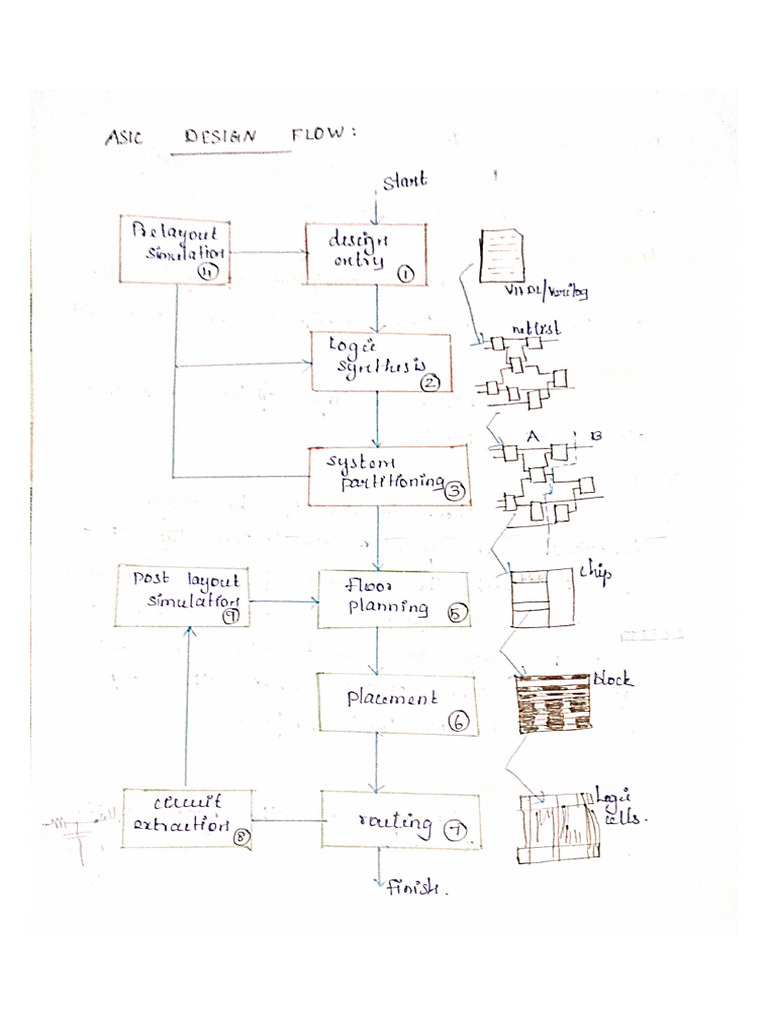 ASIC DESIGN FLOW:
Start
Prelayout
simulation
4
design
entry
1
VHDL/Verilog
Logic
synthesis
2
netlist
system
partitioning
3
A
B
post layout
simulation
9
floor
planning
5
chip
placement
6
block
circuit
extraction
8
routing
7
Logic
cells.
finish.